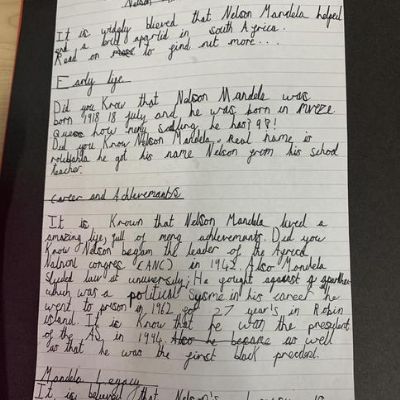 Nelson
It is widgly blieved that Nelson Mandela helped
and a bring apartid in south Africa.
Read on to find out more....
Early lije
Did you Know that Nelson Mandela was
born 1918 18 july and he was born in mveze
how meny he has? 9?!
Did you Know Nelson Mandela, Real name is
he got his name Nelson from his school
teacher.
Carter and Achievements
It is Known that Nelson Mandela lived a
amazing lije, full of meny achievements. Did you
Know Nelson began the leader of the Africa
Nationl congres (ANC) in 1942. Also Mandela
studed law at university. He fought against
which was a political sysme in his career he
went to prison in 1962 for 27 year's in Robin
island. It is Know that he was the presdent
of the in 1994 Also he became as well
as that he was the first black president.
Mandela Legacy
It is believed that Nelson's Legacy is